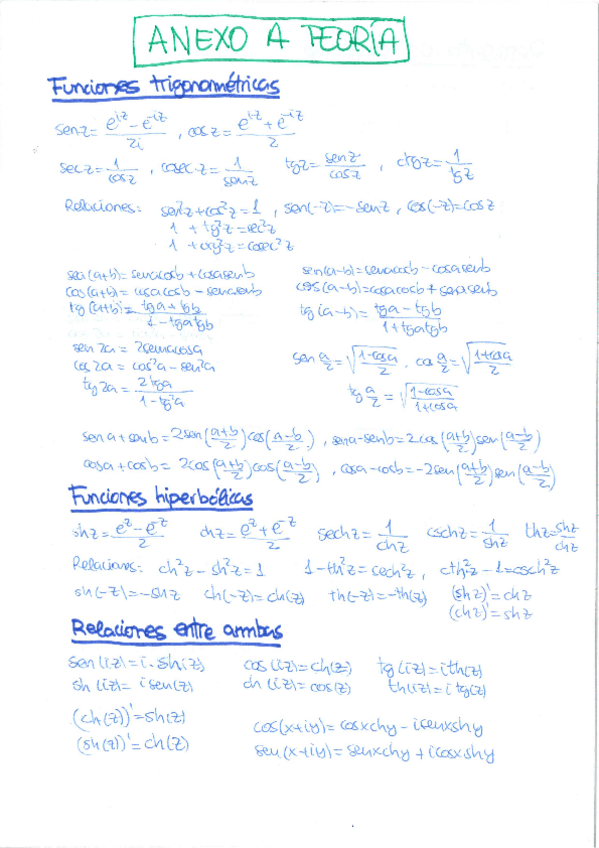 ANEXO A TEORÍA
Funciones trigonométricas
sen z = (e^{iz} - e^{-iz})/2i , cos z = (e^{iz} + e^{-iz})/2
sec z = 1/cos z , cosec z = 1/sen z   tg z = sen z/cos z , ctg z = 1/tg z
Relaciones: sen²z + cos²z = 1 , sen(-z) = -sen z , cos(-z) = cos z
1 + tg²z = sec²z
1 + ctg²z = cosec²z
sen(a+b) = sena cosb + cosa senb   sen(a-b) = sena cosb - cosa senb
cos(a+b) = cosa cosb - sena senb   cos(a-b) = cosa cosb + sena senb
tg(a+b) = (tga + tgb)/(1 - tga tgb)   tg(a-b) = (tga - tgb)/(1 + tga tgb)
sen 2a = 2sena cosa   sen a/2 = √((1-cosa)/2) . cos a/2 = √((1+cosa)/2)
cos 2a = cos²a - sen²a
tg 2a = 2tga/(1 - tg²a)   tg a/2 = √((1-cosa)/(1+cosa))
sena + senb = 2sen((a+b)/2)cos((a-b)/2) , sena - senb = 2cos((a+b)/2)sen((a-b)/2)
cosa + cosb = 2cos((a+b)/2)cos((a-b)/2) , cosa - cosb = -2sen((a+b)/2)sen((a-b)/2)
Funciones hiperbólicas
sh z = (e^z - e^{-z})/2   ch z = (e^z + e^{-z})/2   sech z = 1/ch z   csch z = 1/sh z   th z = sh z/ch z
Relaciones: ch²z - sh²z = 1   1 - th²z = sech²z , cth²z - 1 = csch²z
sh(-z) = -sh z   ch(-z) = ch(z)   th(-z) = -th(z)   (sh z)' = ch z
(ch z)' = sh z
Relaciones entre ambas
sen(iz) = i. sh(z)   cos(iz) = ch(z)   tg(iz) = i th(z)
sh(iz) = i sen(z)   ch(iz) = cos(z)   th(iz) = i tg(z)
(ch(z))' = sh(z)
(sh(z))' = ch(z)
cos(x+iy) = cosx chy - i senx shy
sen(x+iy) = senx chy + i cosx shy